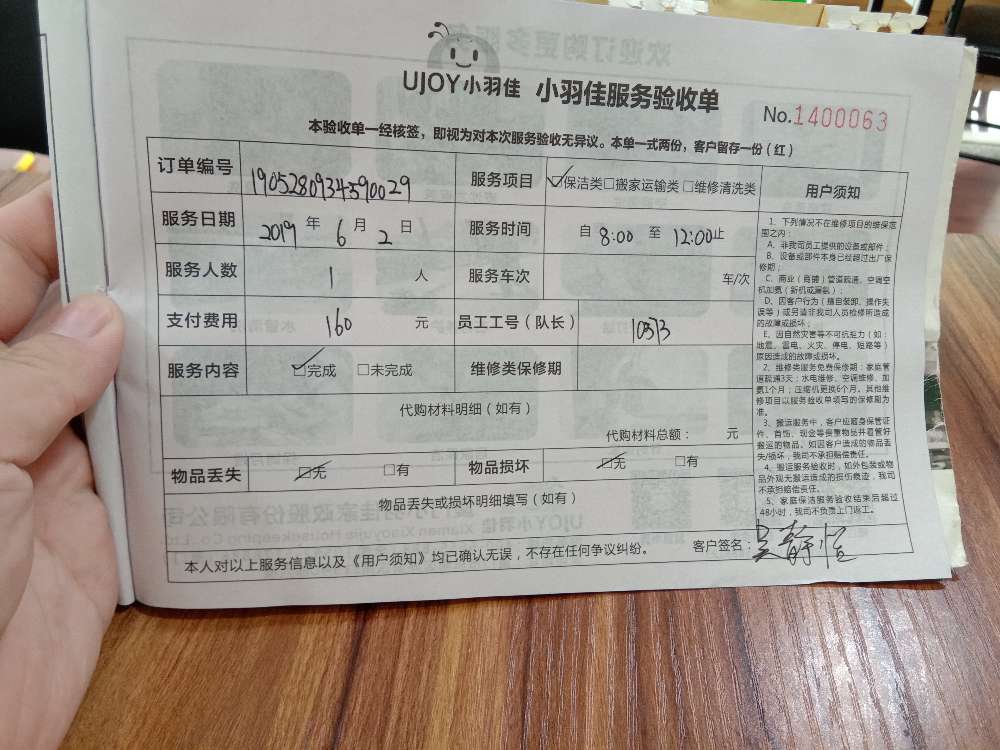 UJOY小羽佳 小羽佳服务验收单
No.1400063
本验收单一经核签，即视为对本次服务验收无异议。本单一式两份，客户留存一份（红）
订单编号 1905280934590029 服务项目 ☑保洁类□搬家运输类□维修清洗类
服务日期 2019 年 6 月 2 日 服务时间 自 8:00 至 12:00止
服务人数 1 人 服务车次 车/次
支付费用 160 元 员工工号（队长） 10373
服务内容 ☑完成 □未完成 维修类保修期
代购材料明细（如有）
代购材料总额： 元
物品丢失 ☑无 □有 物品损坏 ☑无 □有
物品丢失或损坏明细填写（如有）
本人对以上服务信息以及《用户须知》均已确认无误，不存在任何争议纠纷。 客户签名：吴静恒
用户须知
1、下列情况不在维修项目的维保范
围之内：
A、非我司员工提供的设备或部件；
B、设备或部件本身已经超过出厂保
修期；
C、商业（商铺）管道疏通、空调空
机加氨（新机或漏氨）；
D、因客户行为（擅自装卸、操作失
误等）或另请非我司人员检修所造成
的故障或损坏；
E、因自然灾害等不可抗拒力（如：
地震、雷电、火灾、停电、短路等）
原因造成的故障或损坏。
2、维修类服务免费保修期：家庭管
道疏通3天；水电维修、空调维修、加
氨1个月；压缩机更换6个月。其他维
修项目以服务验收单填写的保修期为
准。
3、搬运服务中，客户应随身保管证
件、首饰、现金等贵重物品并看管好
搬运的物品。如因客户造成的物品丢
失/损坏，我司不承担赔偿责任。
4、搬运服务验收时，如外包装或物
品外观无搬运造成的损伤痕迹，我司
不承担赔偿责任。
5、家庭保洁服务验收结束后超过
48小时，我司不负责上门返工。